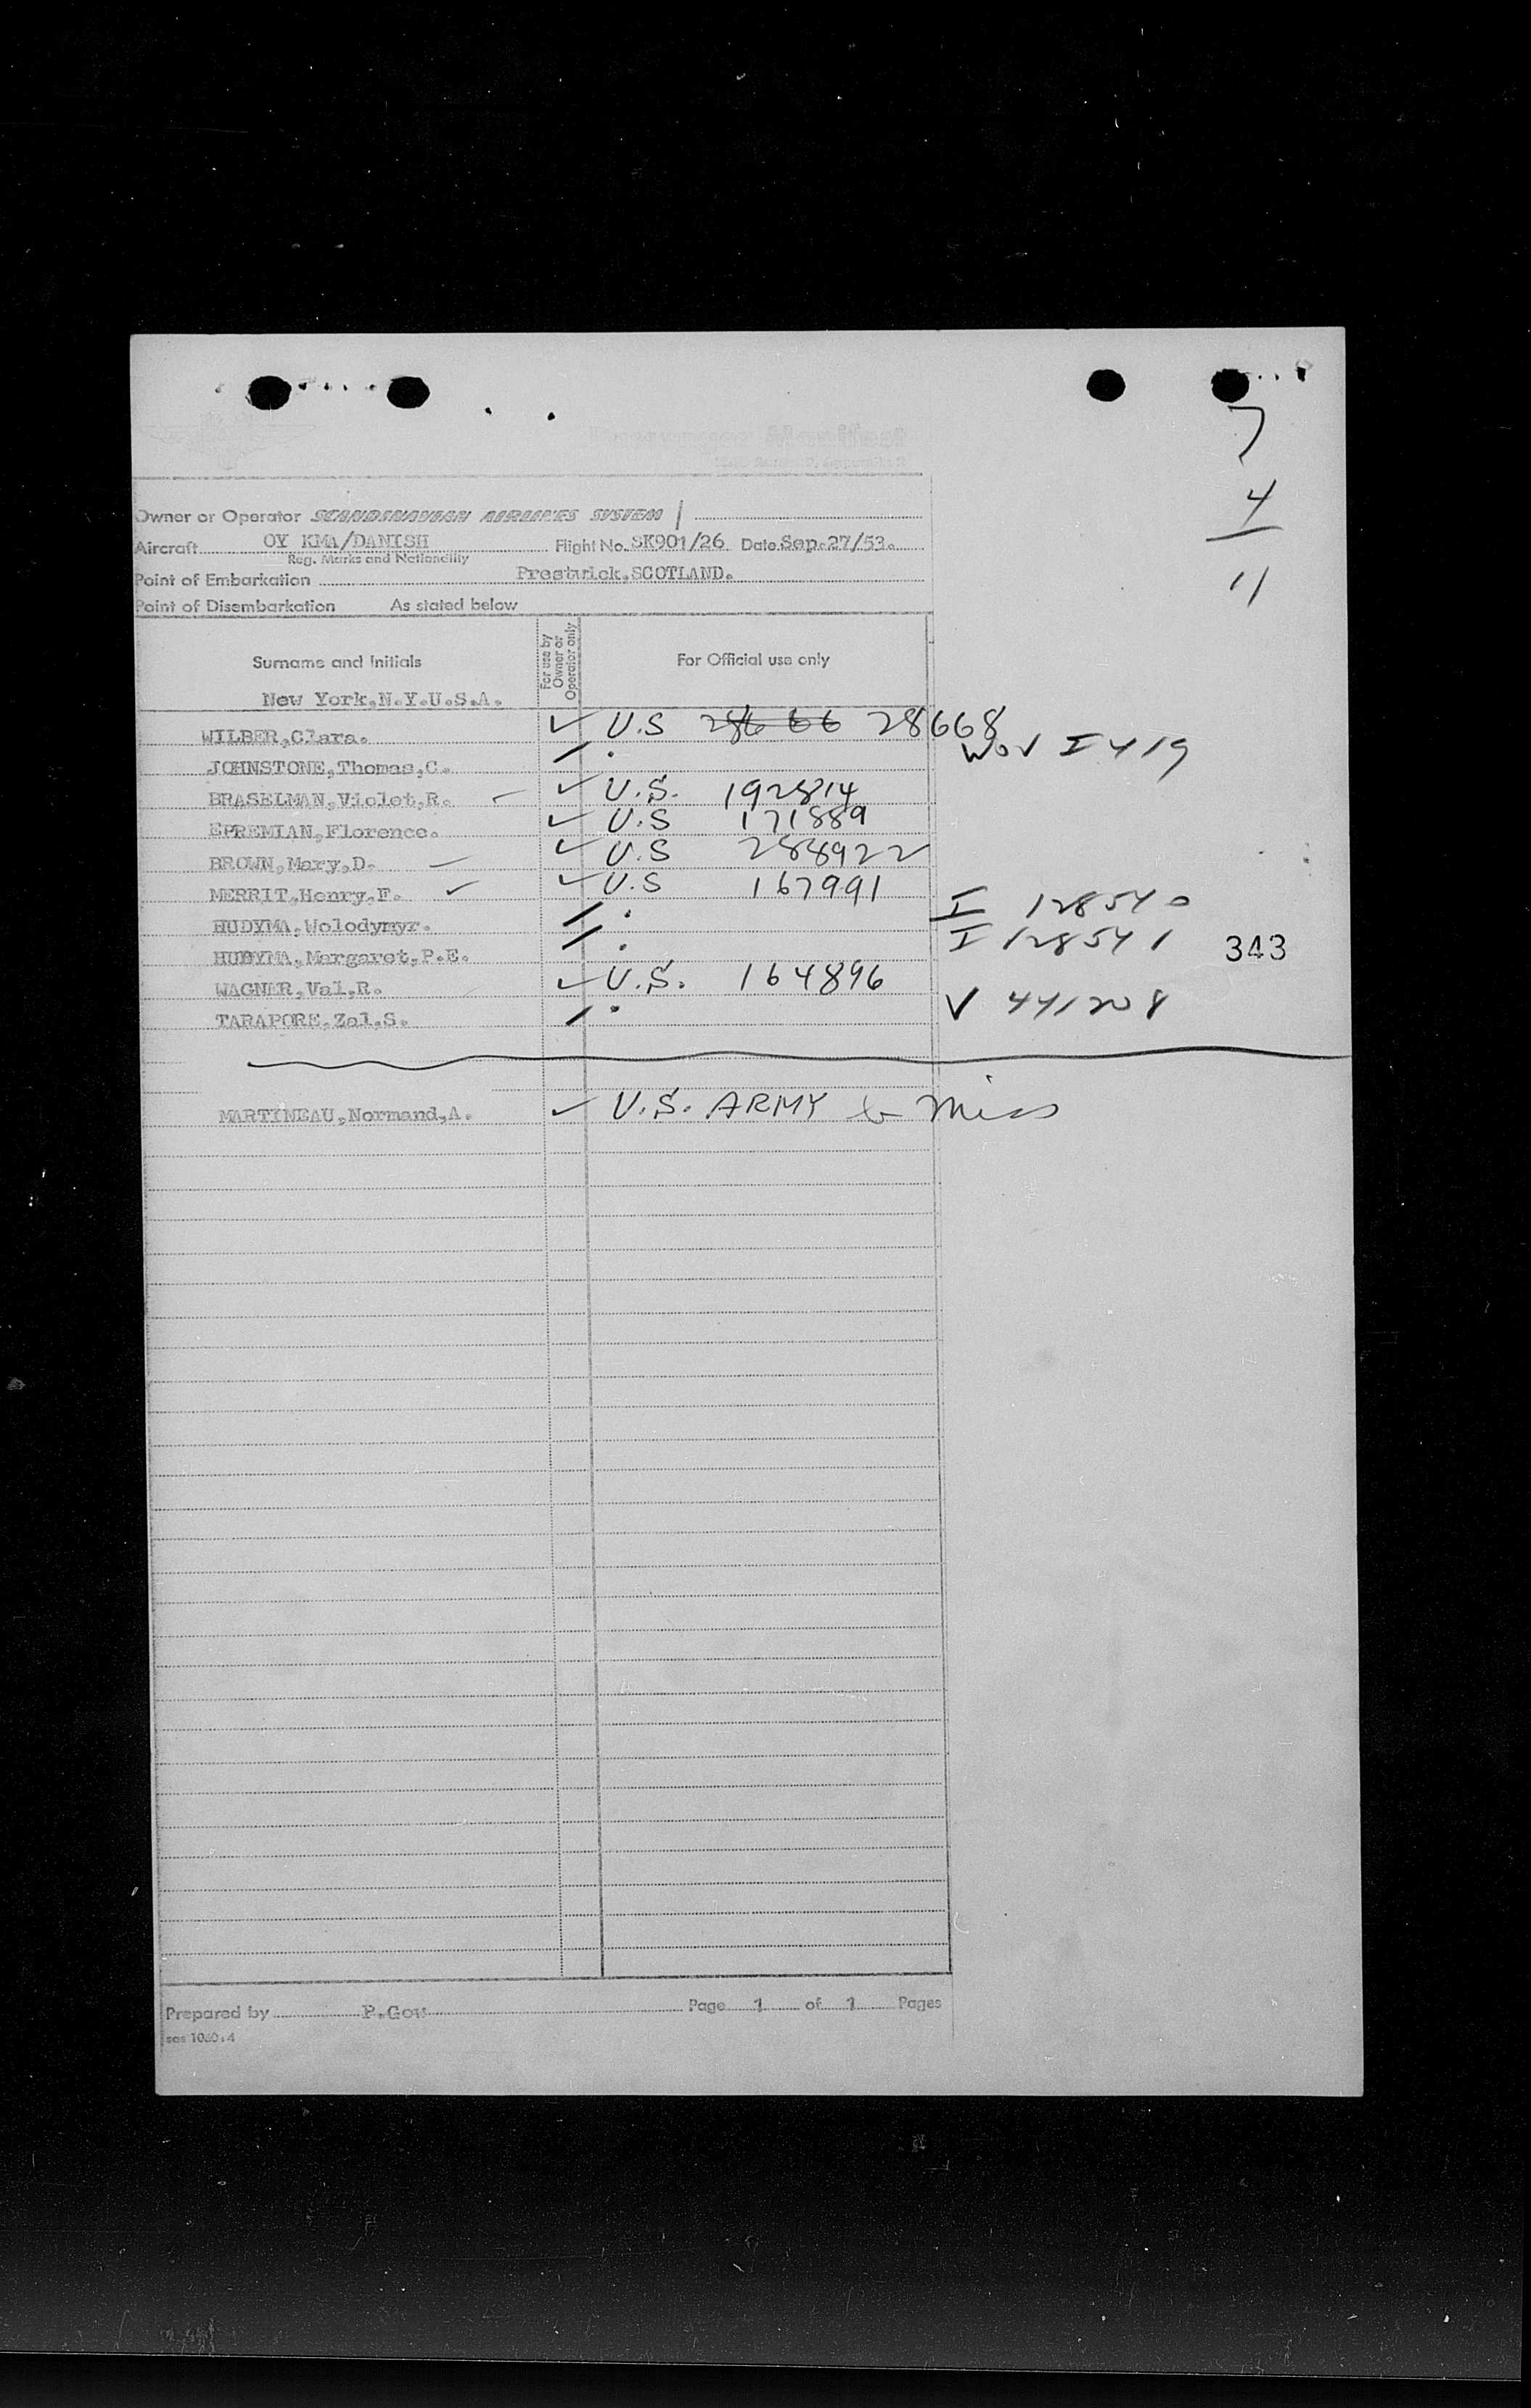 Passenger Manifest
7
4
11
Owner or Operator SCANDINAVIAN AIRLINES SYSTEM
Aircraft OY KMA/DANISH Flight No. SK901/26 Date Sep.27/53.
Reg. Marks and Nationality
Point of Embarkation Prestwick.SCOTLAND.
Point of Disembarkation As stated below
Surname and Initials For use by Owner or Operator only For Official use only
New York.N.Y.U.S.A.
WILBER,Clara. ✓ U.S 286 66 28668
JOHNSTONE,Thomas,C. WOV I 419
BRASELMAN,Violet,R. ✓ U.S. 192814
EPREMIAN,Florence. ✓ U.S 171889
BROWN,Mary,D. ✓ U.S 288922
MERRIT,Henry,F. ✓ ✓ U.S 167991
HUDYMA,Wolodymyr. I 128540
HUDYMA,Margaret,P.E. I 128541 343
WAGNER,Val,R. ✓ U.S. 164896
TARAPORE.Zal.S. V 441208
MARTINEAU,Normand,A. ✓ U.S. ARMY Miss
Prepared by P.Gow Page 1 of 1 Pages
sas 1080:4